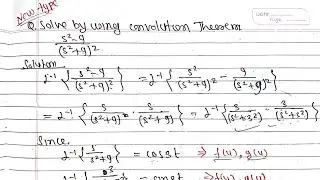 New-type
Date
Page
Q. Solve by using convolution Theorem
s²-9
(s²+9)²
Solution
L⁻¹{ s²-9 / (s²+9)² } = L⁻¹{ s² / (s²+9)² - 9 / (s²+9)² }
= L⁻¹{ s / (s²+9) · s / (s²+9) } = L⁻¹{ s / (s²+3²) - 3 / (s²+3²) }
Since.
L⁻¹{ s / s²+9 } = cos3t ⇒ f(u), g(u)
L⁻¹{ 3